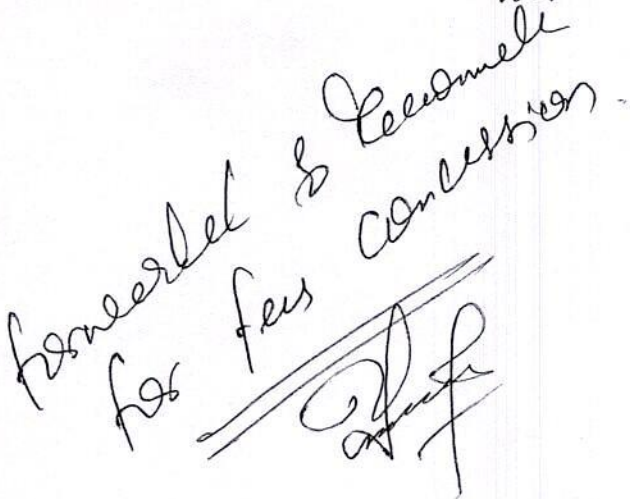 forwarded & Recommend
for fees concession.